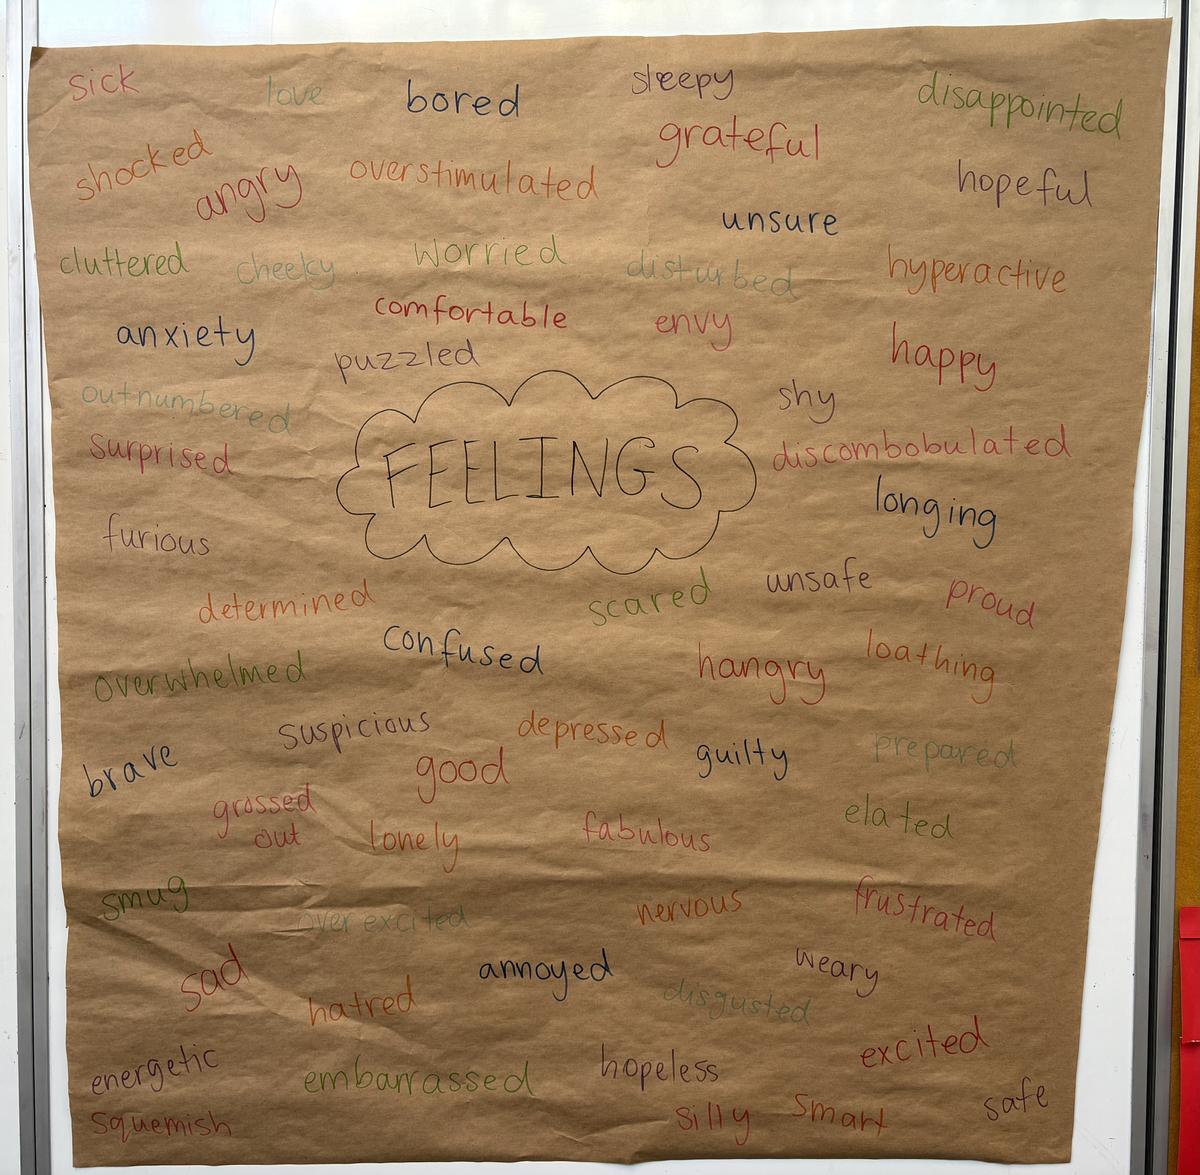 sick
love
bored
sleepy
disappointed
shocked
angry
overstimulated
grateful
hopeful
unsure
cluttered
cheeky
worried
disturbed
hyperactive
anxiety
comfortable
envy
happy
puzzled
outnumbered
shy
surprised
FEELINGS
discombobulated
longing
furious
determined
scared
unsafe
proud
confused
overwhelmed
hangry
loathing
suspicious
depressed
guilty
prepared
brave
good
grossed
out
lonely
fabulous
elated
smug
over excited
nervous
frustrated
sad
annoyed
weary
hatred
disgusted
excited
energetic
embarrassed
hopeless
safe
squemish
silly
smart